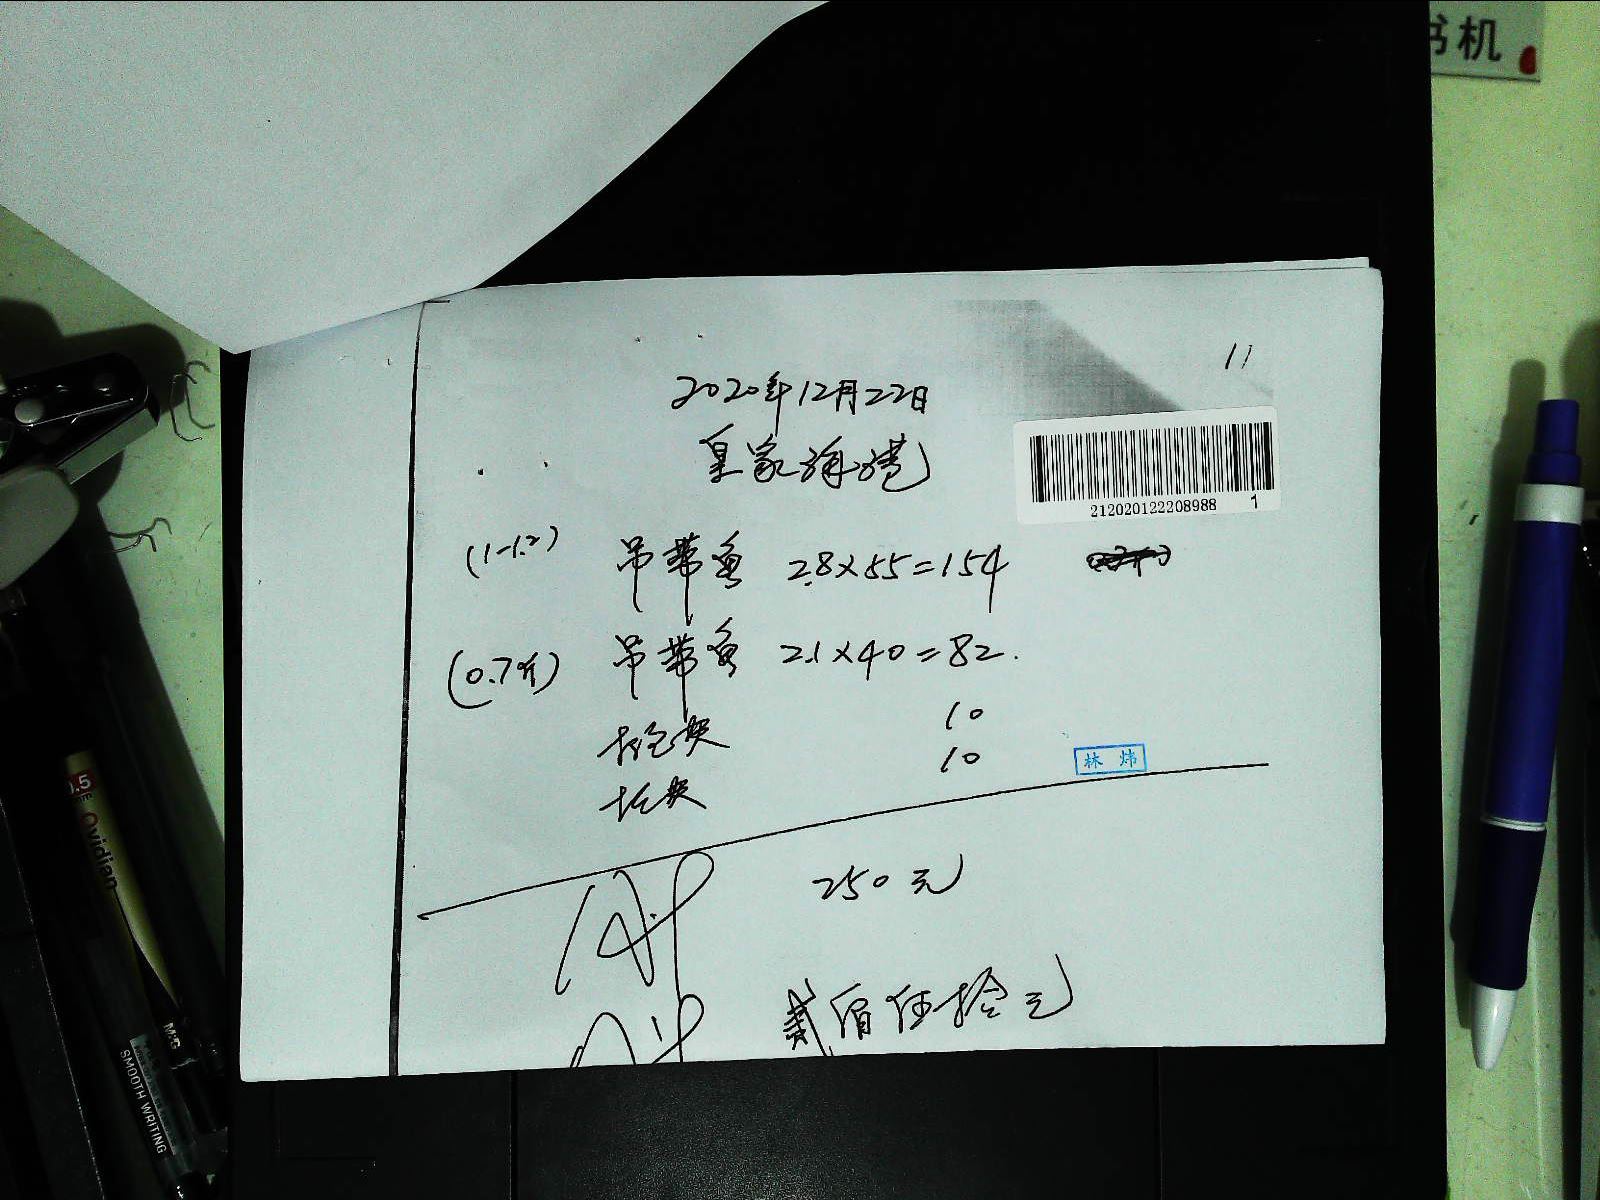 书机
11
2020年12月22日
皇家海港
212020122208988 1
(1-1.2) 吊带鱼 2.8×55=154
(0.7斤) 吊带鱼 2.1×40=82.
10
10
林炜
250元
贰佰伍拾元
0.5
Ovidian
M&G
SMOOTH WRITING